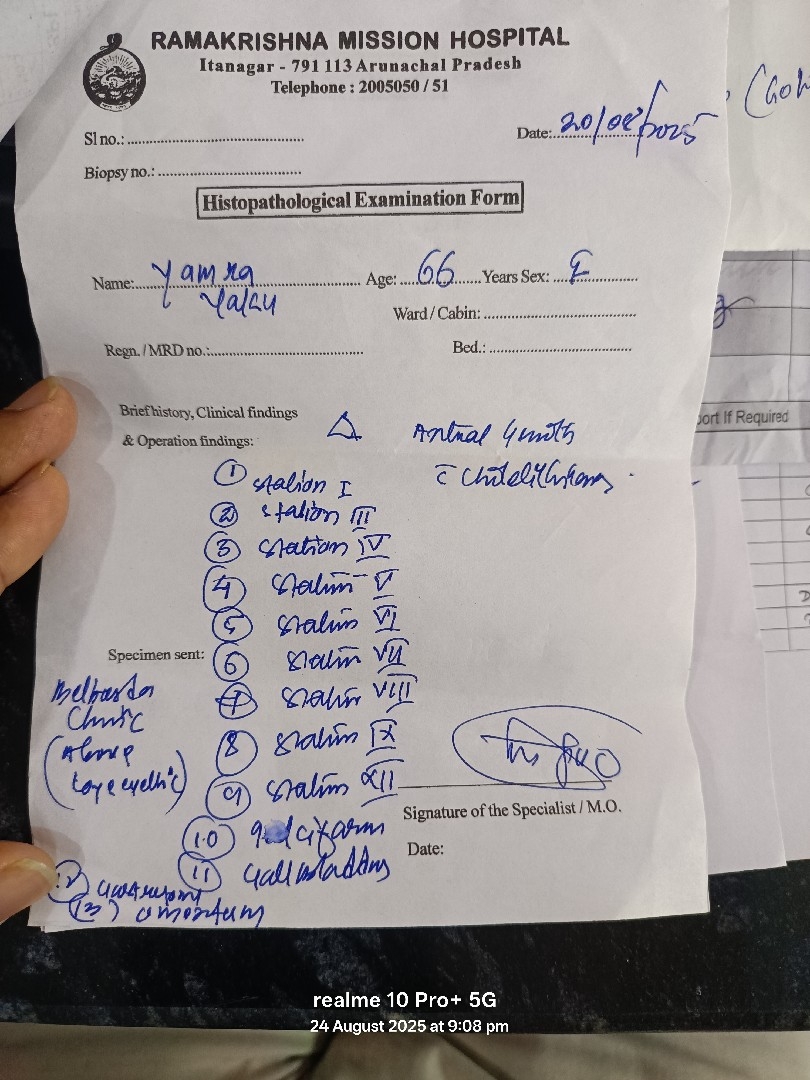 RAMAKRISHNA MISSION HOSPITAL
Itanagar - 791 113 Arunachal Pradesh
Telephone : 2005050 / 51
Sl no.: Date: 20/08/2025
Biopsy no.:
Histopathological Examination Form
Name: Yamra Age: 66 Years Sex: F
Yalu
Ward / Cabin:
Regn. / MRD no.: Bed.:
Brief history, Clinical findings
& Operation findings: △ Antral Growth
c̄
① Station I
② Station III
③ Station IV
④ Station V
⑤ Station VI
Specimen sent: ⑥ Station VII
⑦ Station VIII
Clinic
(Above
⑧ Station IX
⑨ Station XII
Signature of the Specialist / M.O.
10
Date:
11 Gallbladder
12
(13) omentum
port If Required
realme 10 Pro+ 5G
24 August 2025 at 9:08 pm